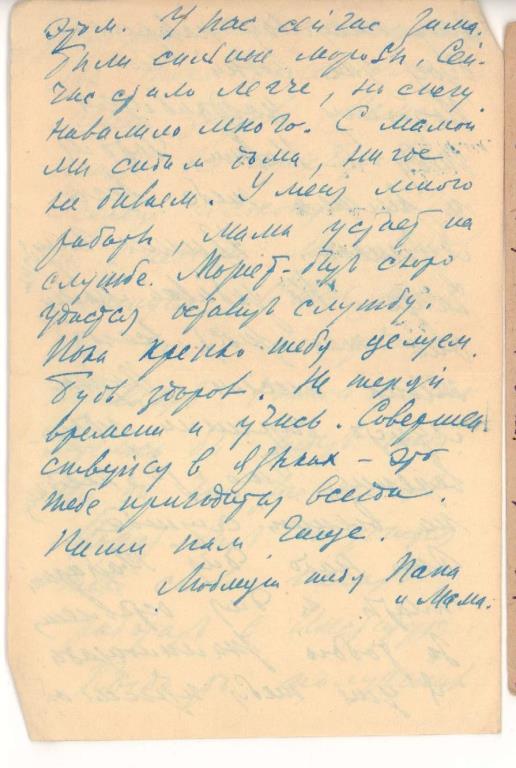 этом. У нас сейчас зима.
Были сильные морозы, сей-
час стало легче, но снегу
навалило много. С мамой
мы сидим дома, нигде
не бываем. У меня много
работы, мама устает на
службе. Может-быть скоро
удастся оставить службу.
Пока крепко тебя целуем.
Будь здоров. Не теряй
времени и учись. Совершен
ствуйся в языках – это
тебе пригодится всегда.
Пиши нам чаще.
Любящие тебя Папа
и Мама.